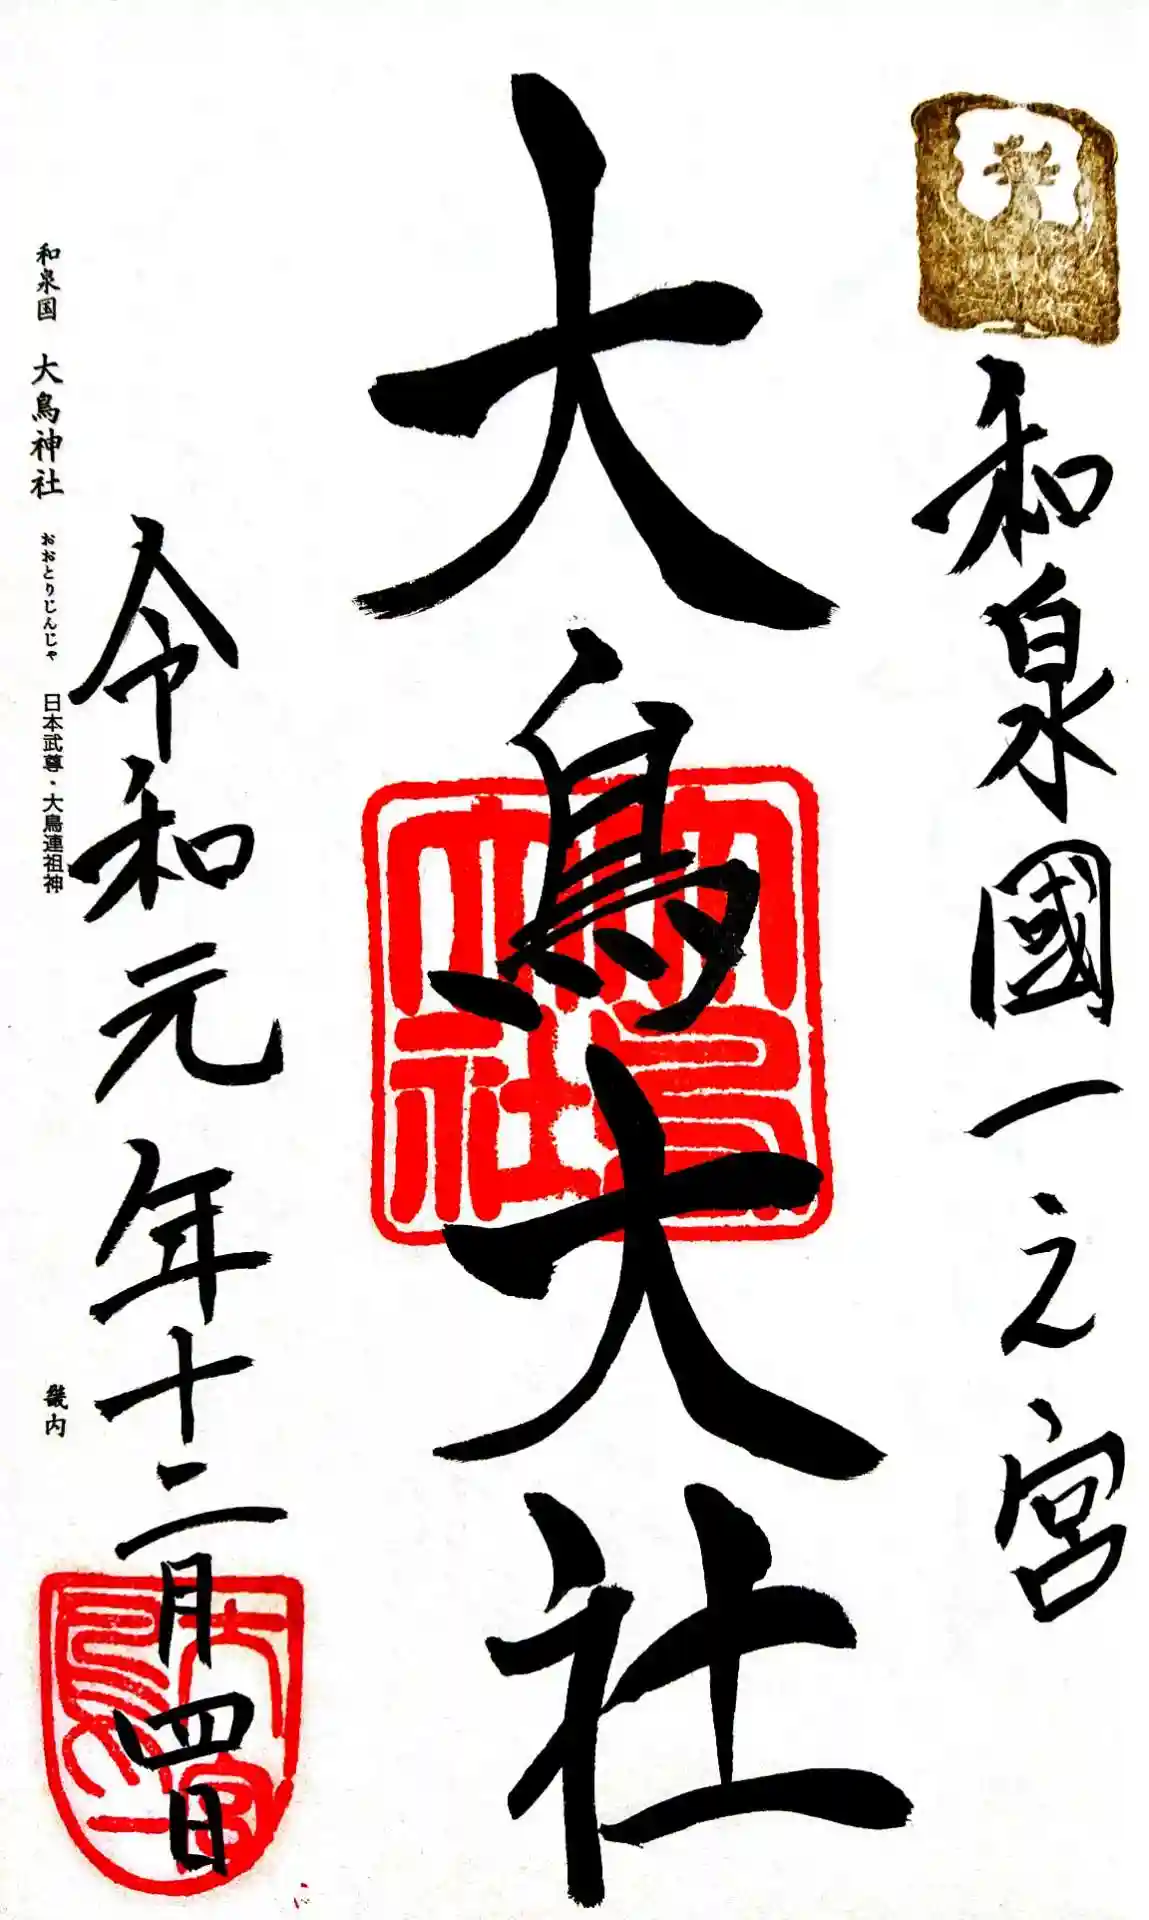 和泉國一之宮
大鳥大社
令和元年十二月四日
和泉国 大鳥神社 おおとりじんじゃ 日本武尊・大鳥連祖神 畿内